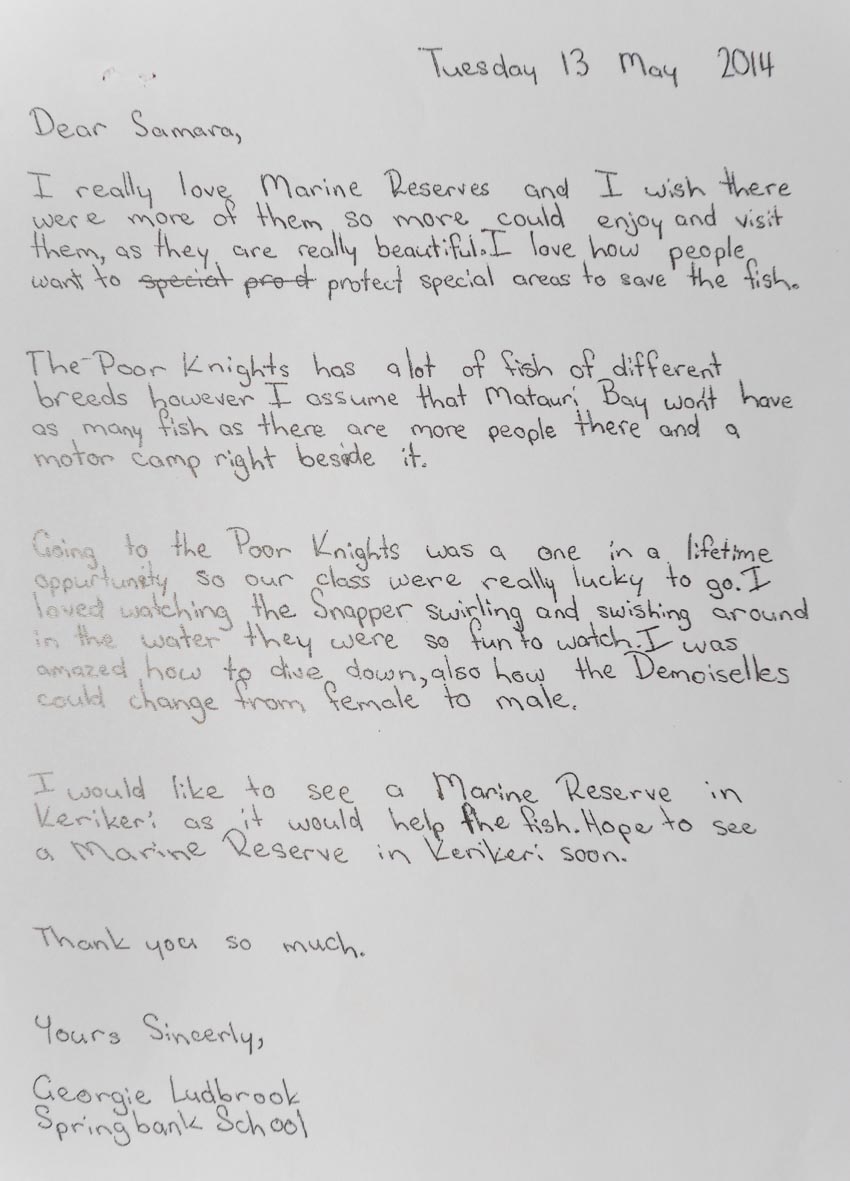 Tuesday 13 May 2014
Dear Samara,
I really love Marine Reserves and I wish there
were more of them so more could enjoy and visit
them, as they are really beautiful. I love how people
want to special pro d protect special areas to save the fish.
The Poor Knights has alot of fish of different
breeds however I assume that Matauri Bay won't have
as many fish as there are more people there and a
motor camp right beside it.
Going to the Poor Knights was a one in a lifetime
oppurtunity so our class were really lucky to go. I
loved watching the Snapper swirling and swishing around
in the water they were so fun to watch. I was
amazed how to dive down, also how the Demoiselles
could change from female to male.
I would like to see a Marine Reserve in
Kerikeri as it would help the fish. Hope to see
a Marine Reserve in Kerikeri soon.
Thank you so much.
Yours Sincerly,
Georgie Ludbrook
Springbank School